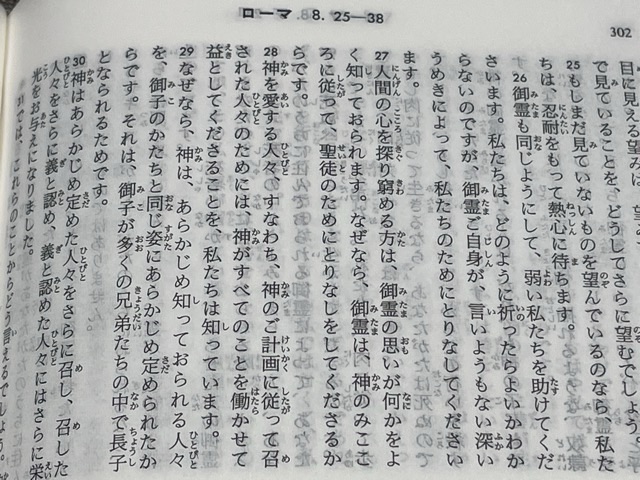 ローマ 8. 25—38
302
目に見える望みは、望
で見ていることを、どうしてさらに望むでしょう。
25 もしまだ見ていないものを望んでいるのなら、私た
ちは、忍耐をもって熱心に待ちます。
26 御霊も同じようにして、弱い私たちを助けてくだ
さいます。私たちは、どのように祈ったらよいかわか
らないのですが、御霊ご自身が、言いようもない深い
うめきによって、私たちのためにとりなしてください
ます。
27 人間の心を探り窮める方は、御霊の思いが何かをよ
く知っておられます。なぜなら、御霊は、神のみここ
ろに従って、聖徒のためにとりなしをしてくださるか
らです。
28 神を愛する人々、すなわち、神のご計画に従って召
された人々のためには、神がすべてのことを働かせて
益としてくださることを、私たちは知っています。
29 なぜなら、神は、あらかじめ知っておられる人々
を、御子のかたちと同じ姿にあらかじめ定められたか
らです。それは、御子が多くの兄弟たちの中で長子
となられるためです。
30 神はあらかじめ定めた人々をさらに召し、召した
人々をさらに義と認め、義と認めた人々にはさらに栄
光をお与えになりました。
31 では、これらのことからどう言えるでしょう。